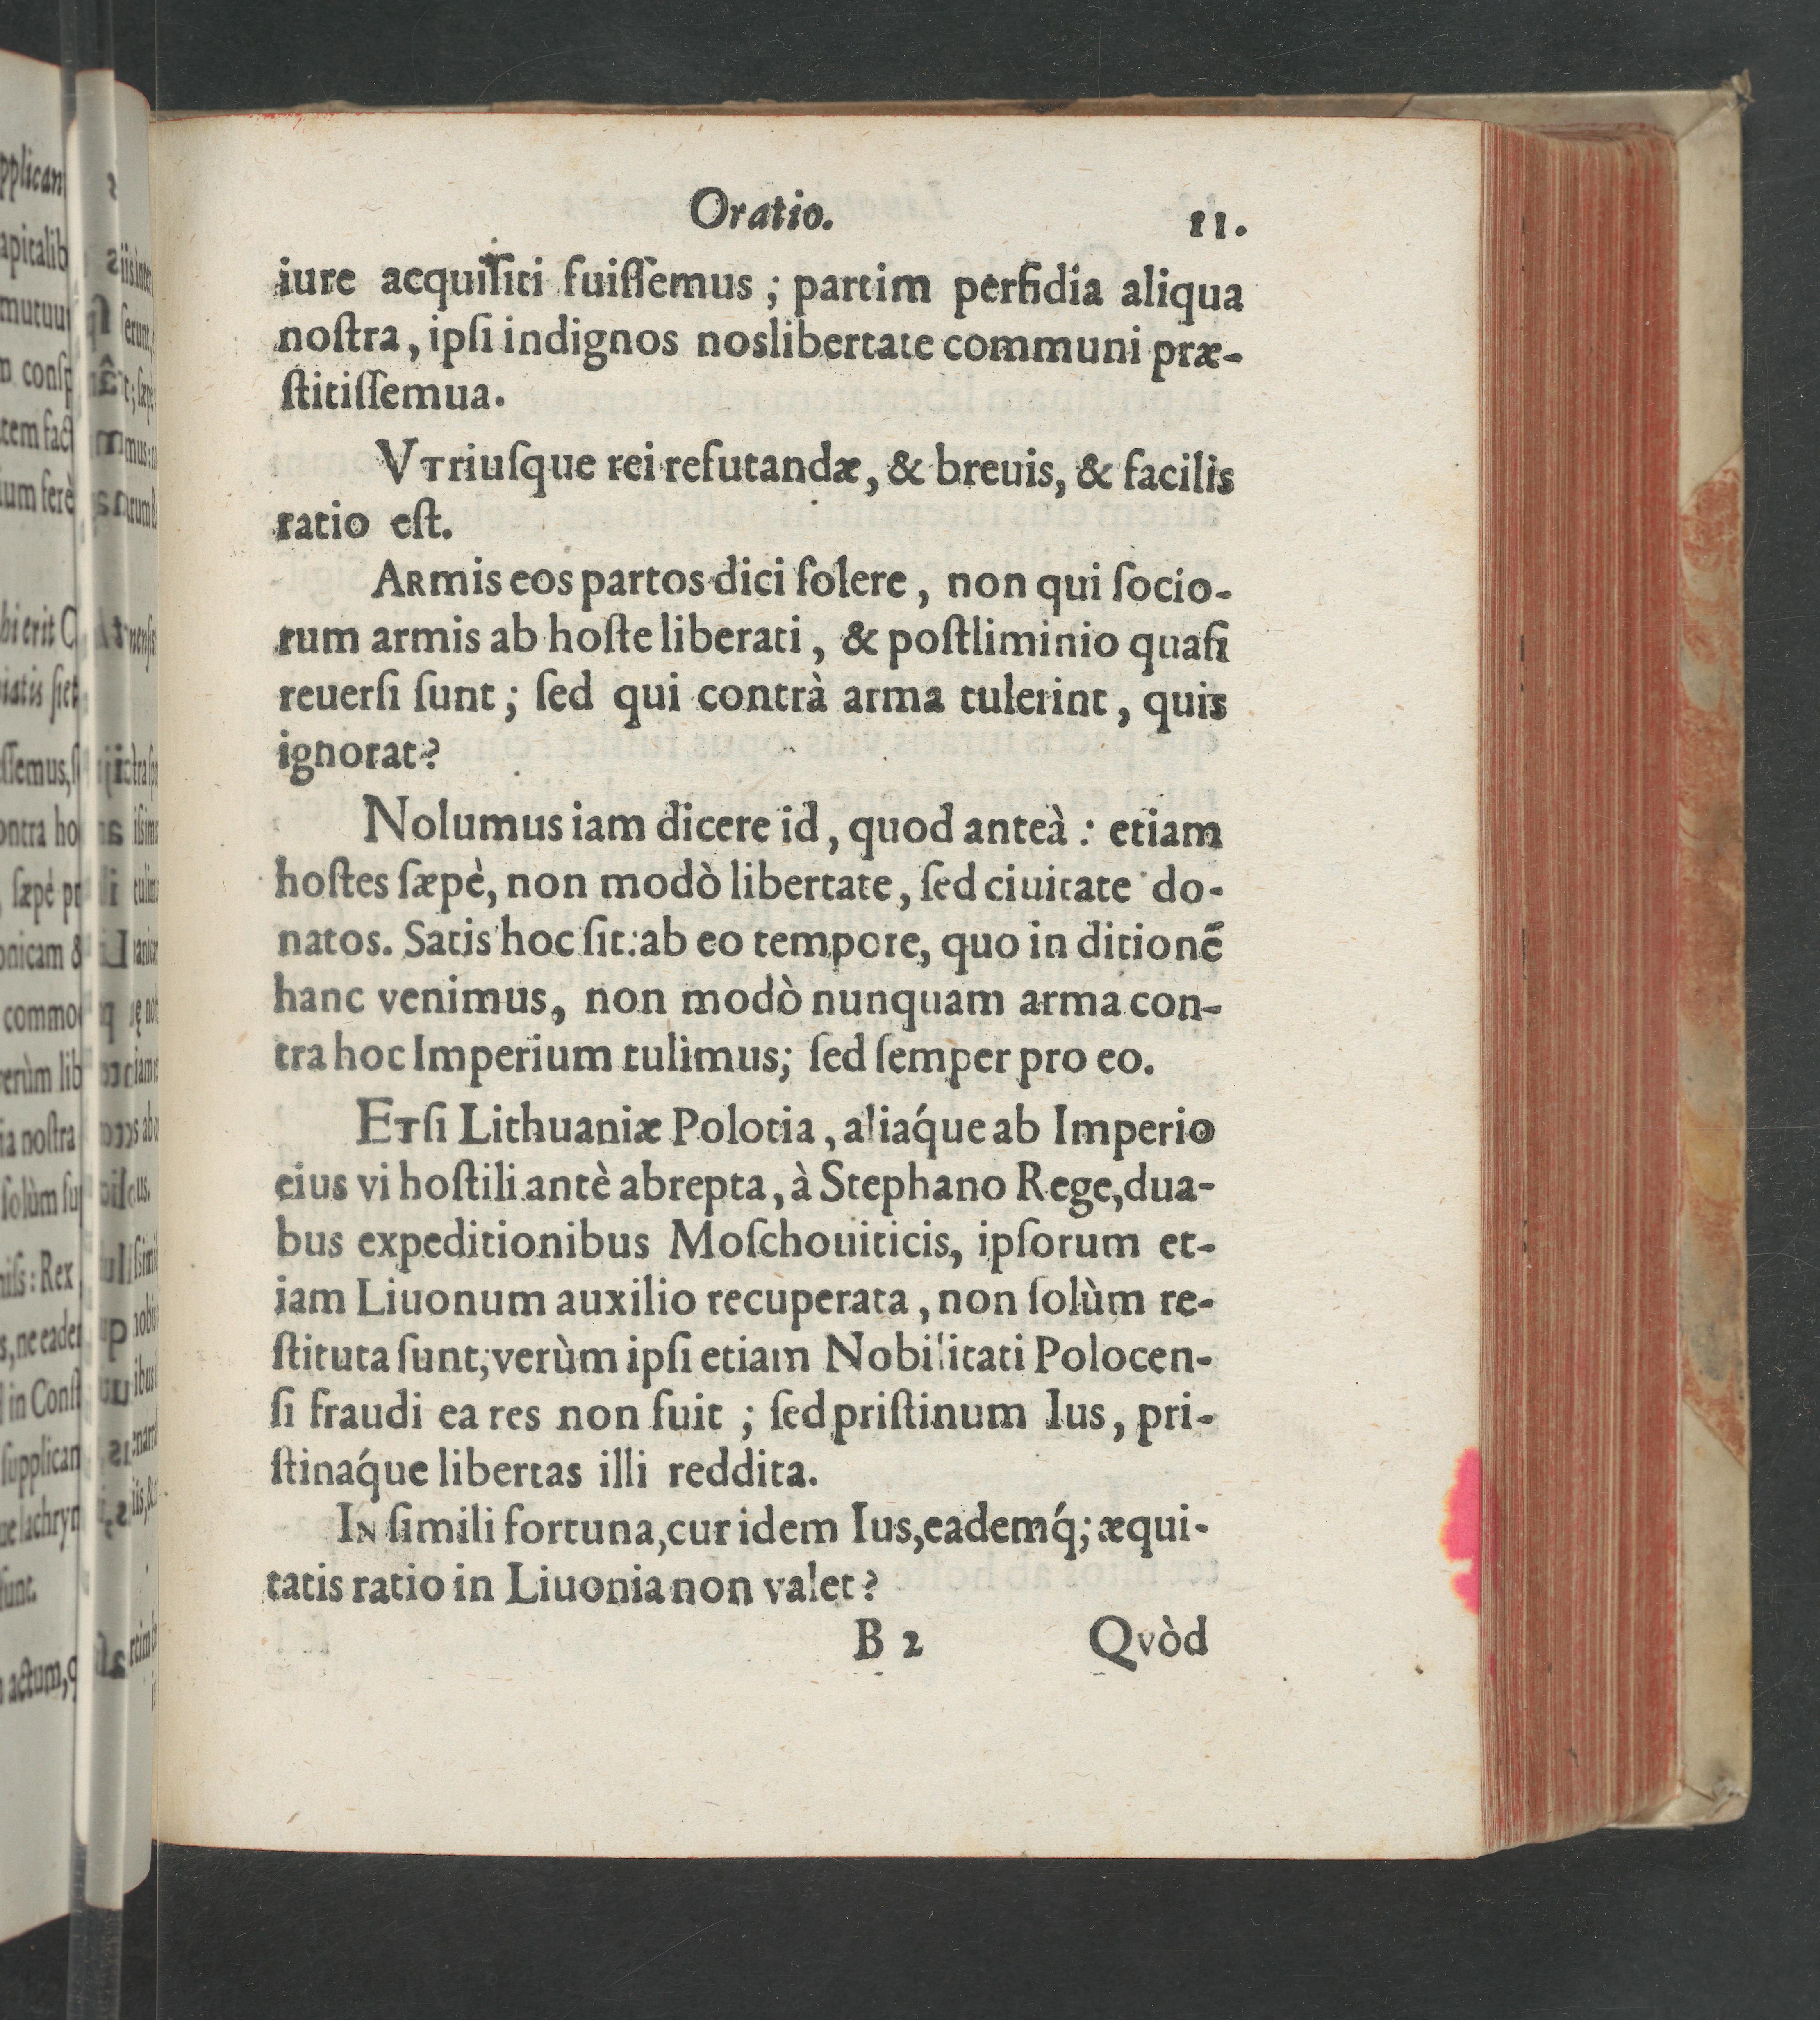 Oratio. 11.
iure acquiſiti fuiſſemus ; partim perfidia aliqua
noſtra, ipſi indignos noslibertate communi præ-
ſtitiſſemua.
Vtriuſque rei refutandæ, & breuis, & facilis
ratio eſt.
Armis eos partos dici ſolere, non qui ſocio-
rum armis ab hoſte liberati, & poſtliminio quaſi
reuerſi ſunt; ſed qui contrà arma tulerint, quis
ignorat?
Nolumus iam dicere id, quod anteà : etiam
hoſtes ſæpè, non modò libertate, ſed ciuitate do-
natos. Satis hoc ſit: ab eo tempore, quo in ditionẽ
hanc venimus, non modò nunquam arma con-
tra hoc Imperium tulimus; ſed ſemper pro eo.
Etſi Lithuaniæ Polotia, aliáque ab Imperio
eius vi hoſtili antè abrepta, à Stephano Rege, dua-
bus expeditionibus Moſchouiticis, ipſorum et-
iam Liuonum auxilio recuperata, non ſolùm re-
ſtituta ſunt; verùm ipſi etiam Nobilitati Polocen-
ſi fraudi ea res non fuit ; ſed priſtinum Ius, pri-
ſtináque libertas illi reddita.
In ſimili fortuna, cur idem Ius, eademq́; æqui-
tatis ratio in Liuonia non valet?
B 2 Qvòd